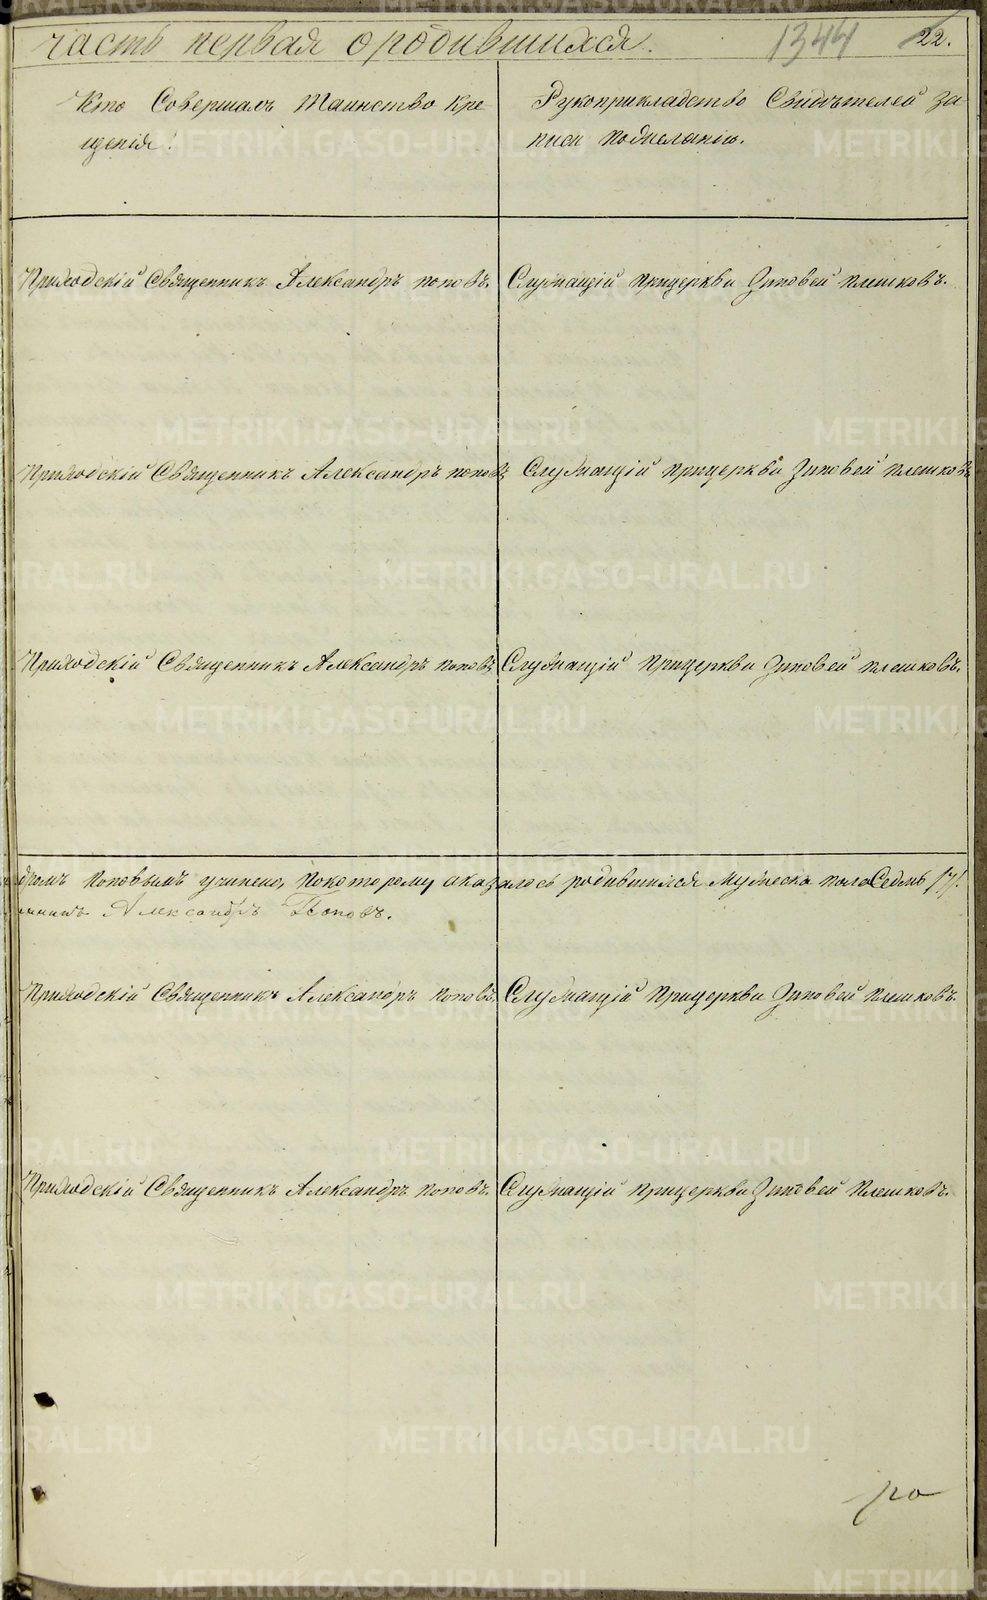 часть первая о родившихся. 1344 22.
Кто Совершалъ Таинство Кре
щенія?
Рукоприкладство Свидѣтелей за
писи по желанію.
Приходскій Священникъ Александръ Поповъ. Служащій при церкви Зиновей Плешковъ.
Приходскій Священникъ Александръ Поповъ Служащій при церкви Зиновей Плешковъ
Приходскій Священникъ Александръ Поповъ Служащій при церкви Зиновей Плешковъ.
дромъ Поповымъ учинено, по которому аказалось родившихся мужеска пола Седмь /7/.
Александръ Поповъ.
Приходскій Священникъ Александръ Поповъ. Служащій при церкви Зиновей Плешковъ.
Приходскій Священникъ Александръ Поповъ. Служащій при церкви Зиновей Плешковъ.
METRIKI.GASO-URAL.RU